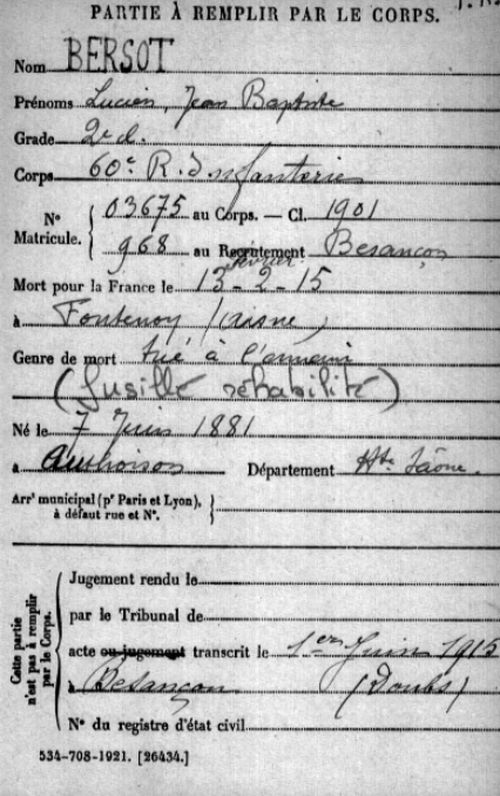 PARTIE À REMPLIR PAR LE CORPS.
Nom BERSOT
Prénoms Lucien, Jean Baptiste
Grade 2e cl.
Corps 60e R. d'Infanterie
N° Matricule. { 03675 au Corps. — Cl. 1901
968 au Recrutement Besançon
février
Mort pour la France le 13-2-15
à Fontenoy (Aisne)
Genre de mort tué à l'ennemi
(fusillé réhabilité)
Né le 7 Juin 1881
à Authoison Département Hte Saône.
Arrt municipal (pr Paris et Lyon), à défaut rue et N°. }
Cette partie n'est pas à remplir par le Corps.
Jugement rendu le
par le Tribunal de
acte ou jugement transcrit le 1er Juin 1915
à Besançon (Doubs)
N° du registre d'état civil
534-708-1921. [26434.]